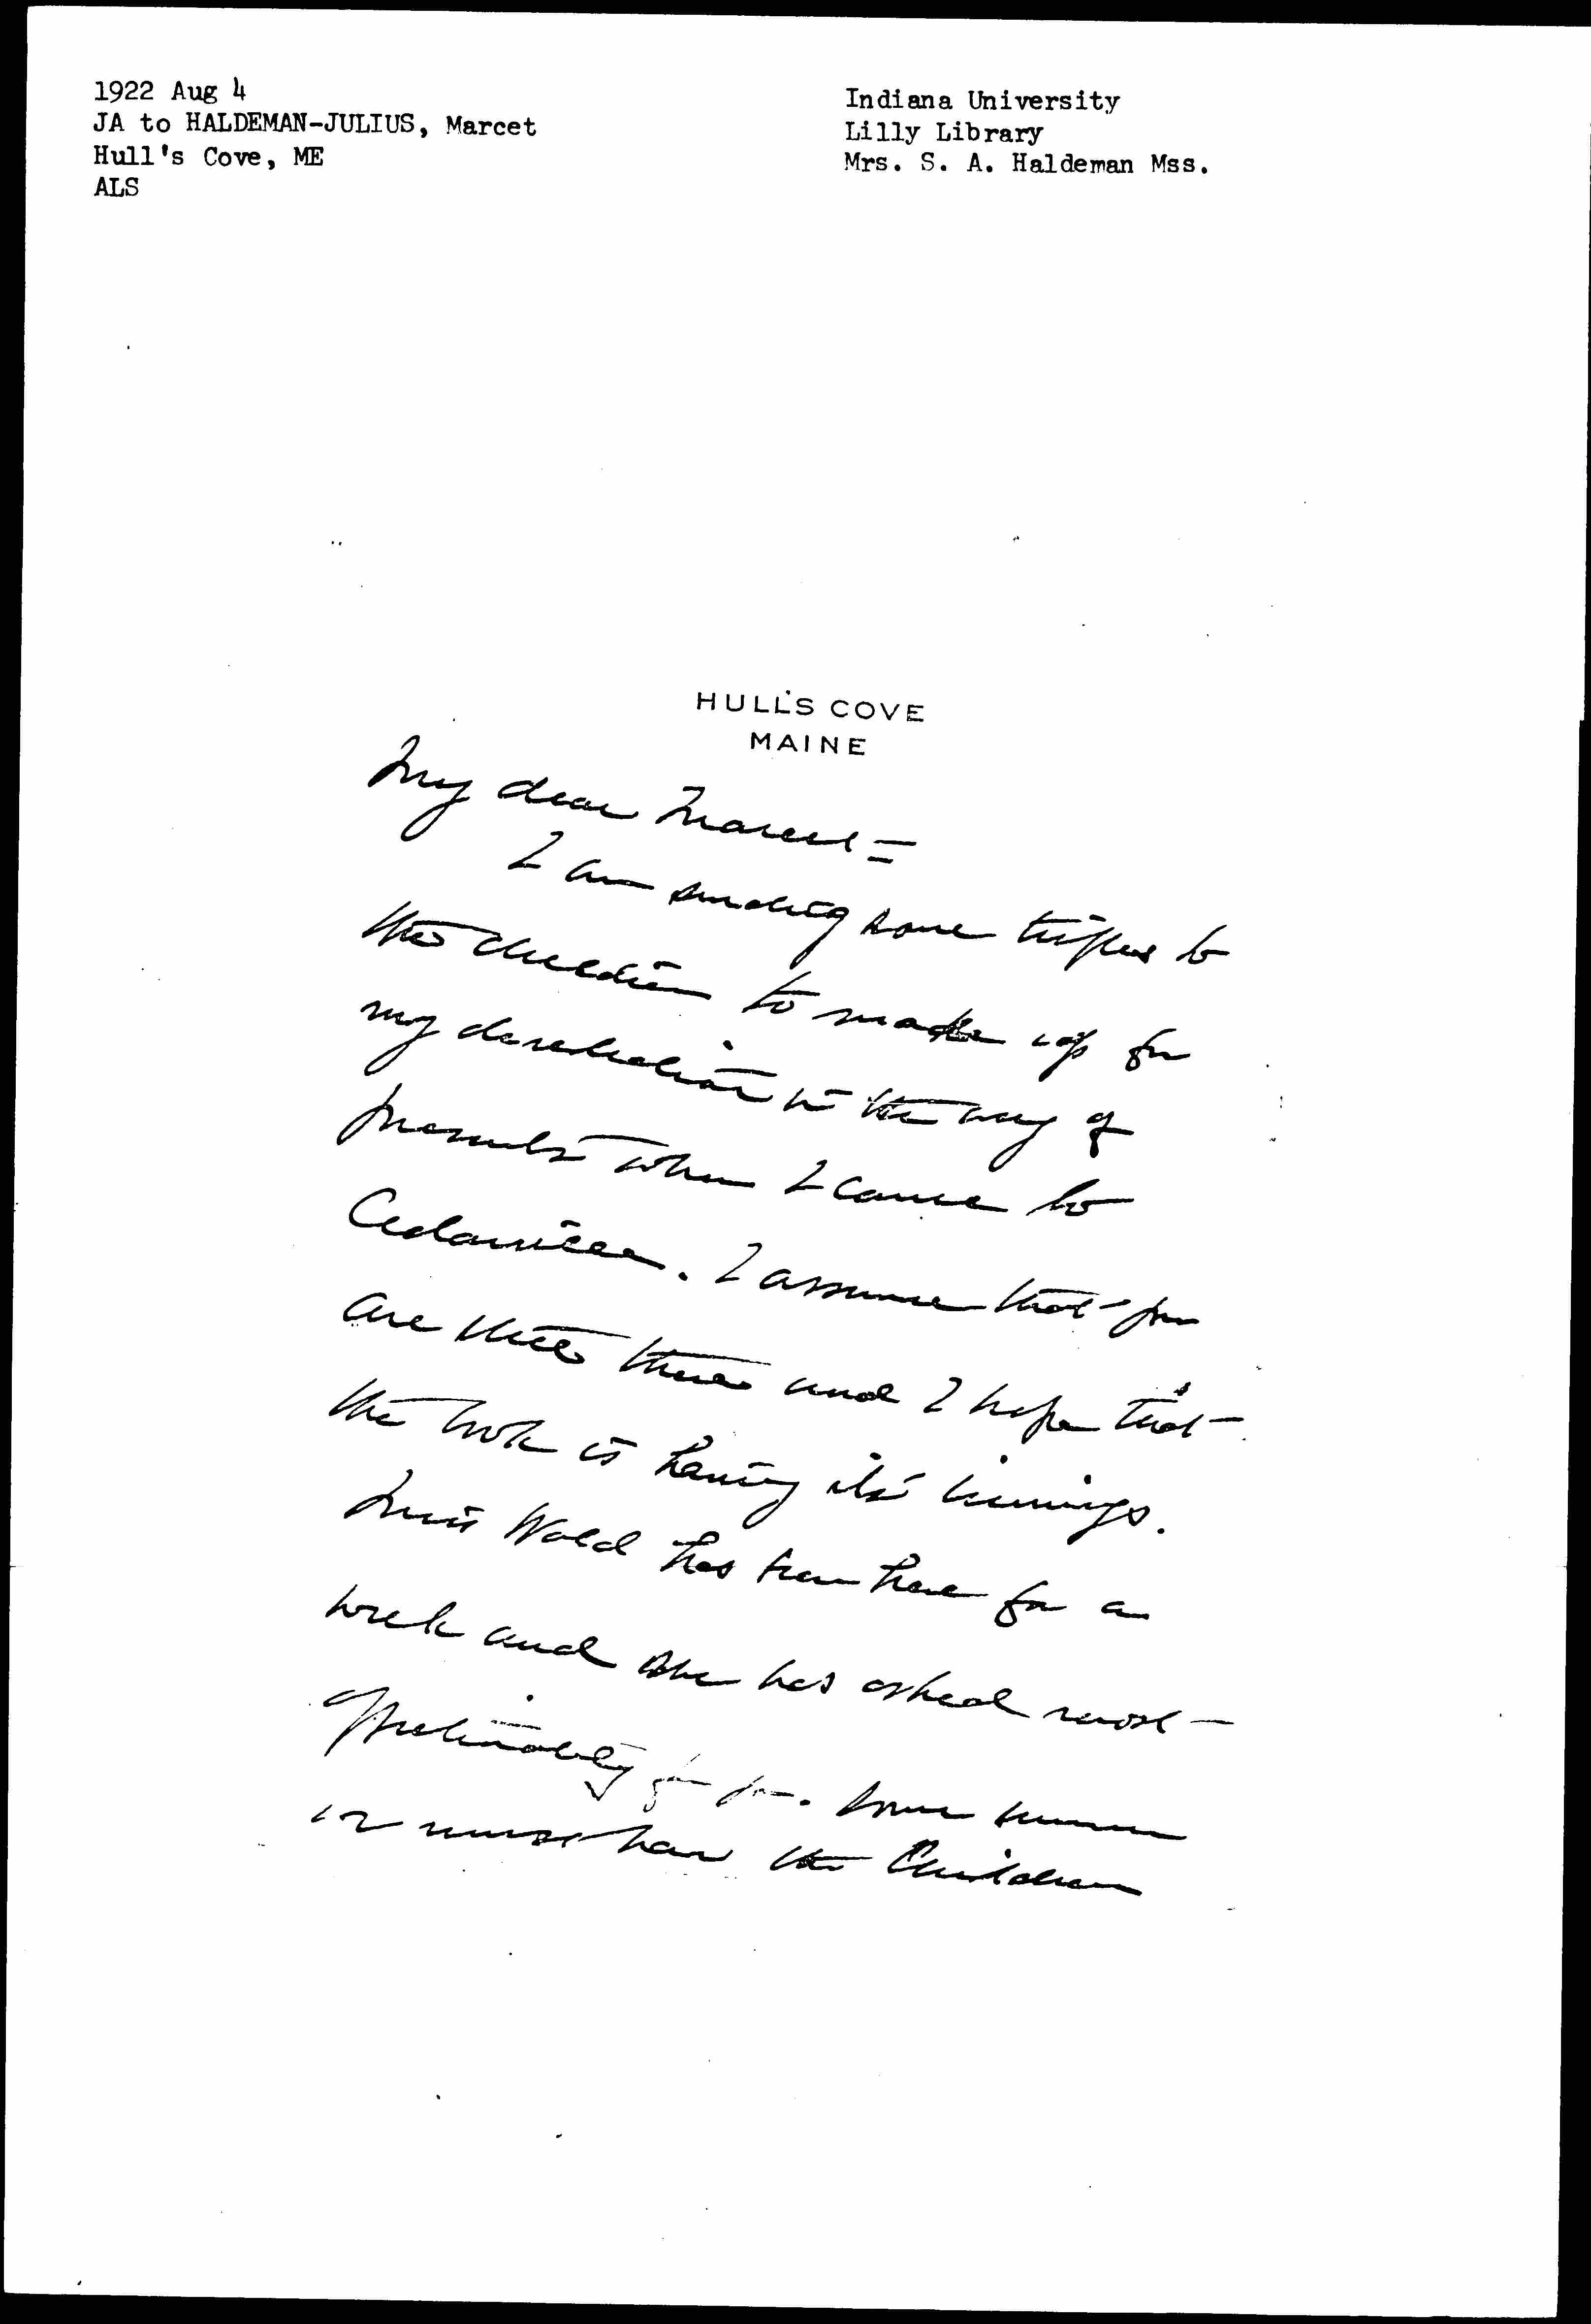 1922 Aug 4
JA to HALDEMAN-JULIUS, Marcet
Hull's Cove, ME
ALS
Indiana University
Lilly Library
Mrs. S. A. Haldeman Mss.
HULL'S COVE
MAINE
My dear Marcet =
I am sending some trifles to
the children to make up for
my dereliction in the way of
presents when I came to
Cedarville. I assume that you
are still there and I hope that
the book is having its innings.
Miss Wald has been here for a
week and she has asked most
affectionately for you. Some summer
we must have the children